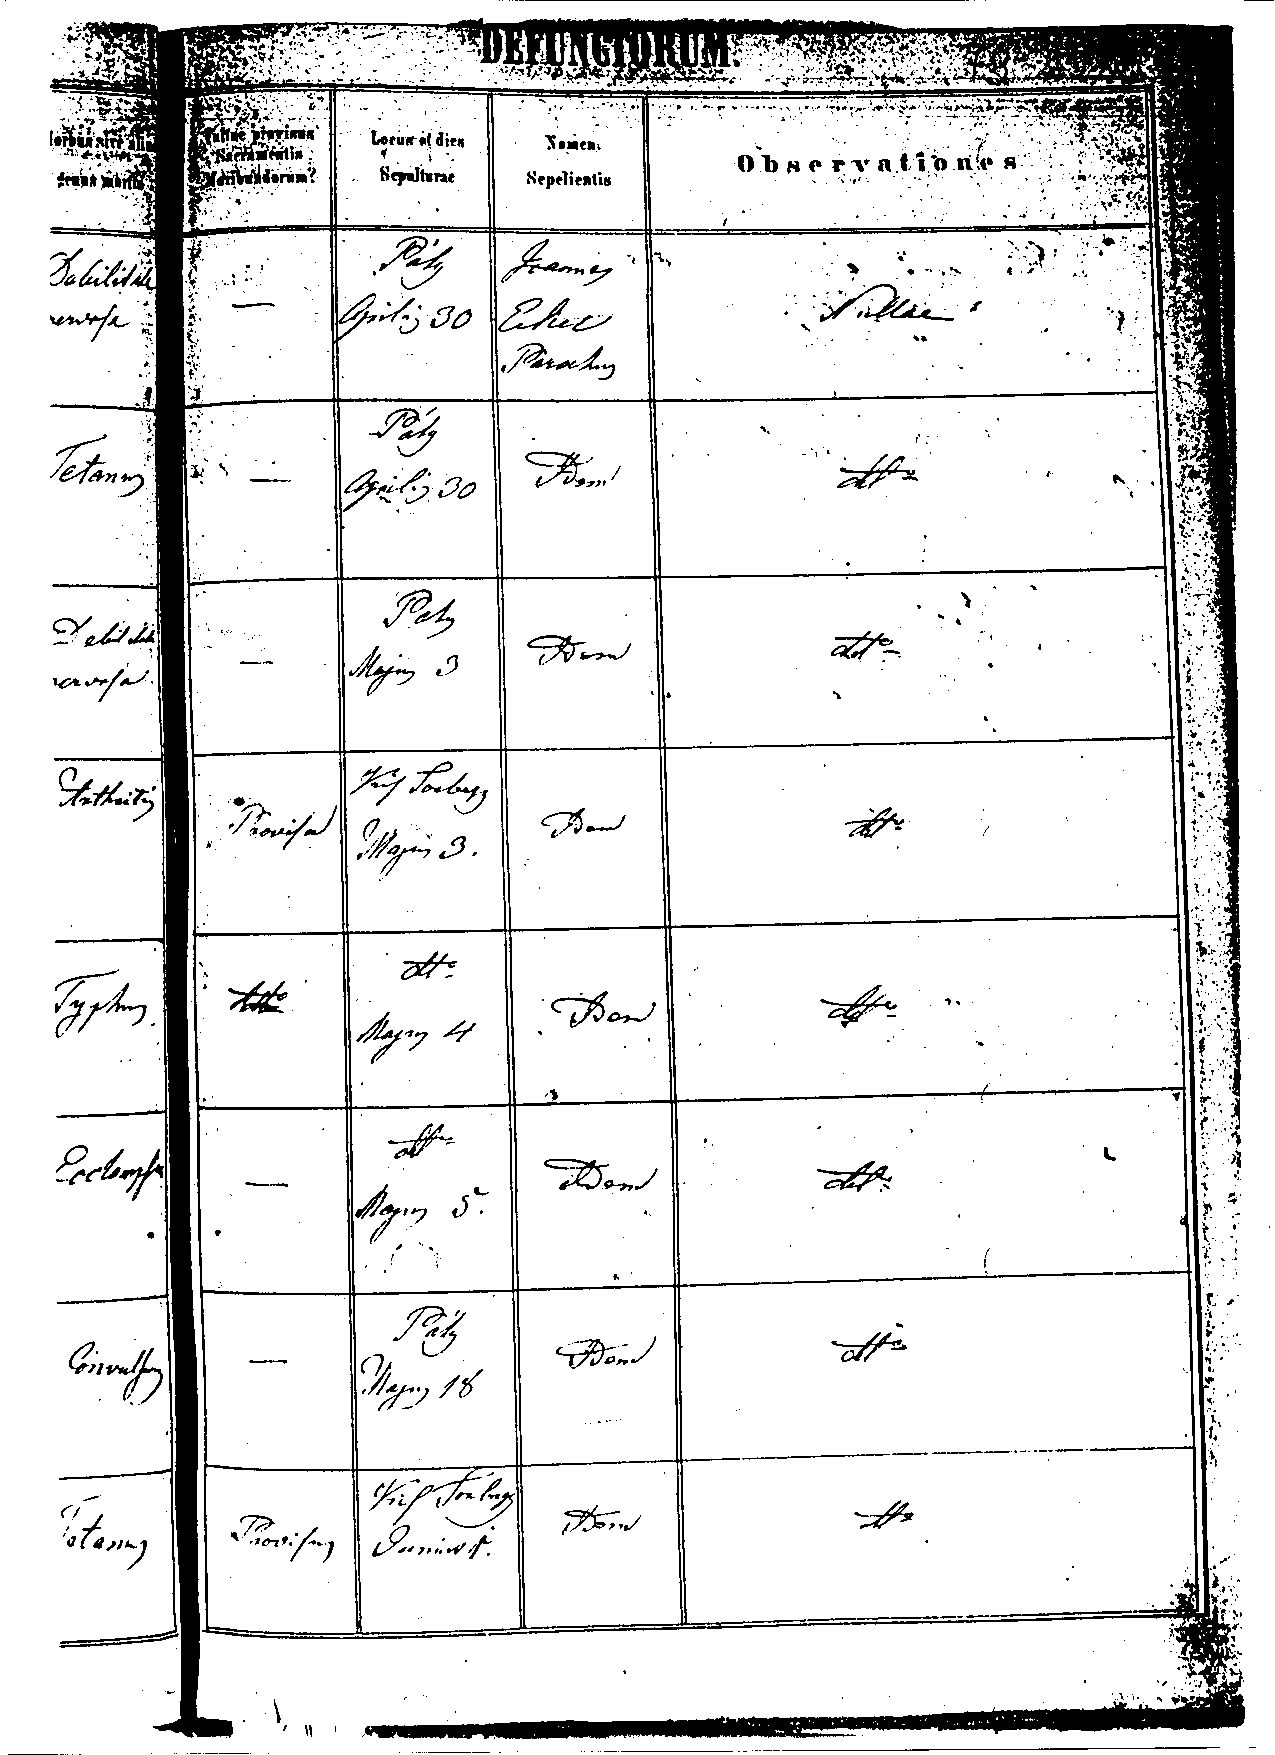 DEFUNCTORUM.
Morbus sive alia
causa mortis
Fuitne provisus
Sacramentis
Moribundorum?
Locus et dies
Sepulturae
Nomen
Sepelientis
Observationes
Debilitate
nervosa
—
Páty
Aprilis 30
Joannes
Parochus
Nullae
Tetanus
—
Páty
Aprilis 30
Idem
dtto
Debilitate
nervosa
—
Páty
Majus 3
Idem
dtto
Arthritis
Provisa
Kis Torbágy
Majus 3.
Idem
dtto
Typhus
dtto
dtto
Majus 4
Idem
dtto
Ecclampsia
—
dtto
Majus 5.
Idem
dtto
Convulsus
—
Páty
Majus 18
Idem
dtto
Tetanus
Provisus
Kis Torbágy
Junius 1.
Idem
dtto